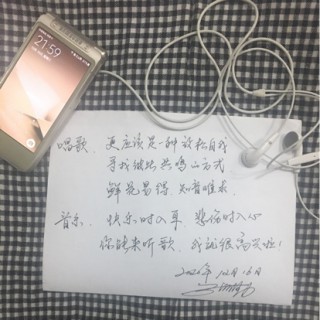 21:59
唱歌、更应该是一种放松自我
寻找彼此共鸣的方式
鲜花易得,知音难求
音乐、快乐时入耳,悲伤时入心
你能来听歌,我就很高兴啦!
2020年12月16日